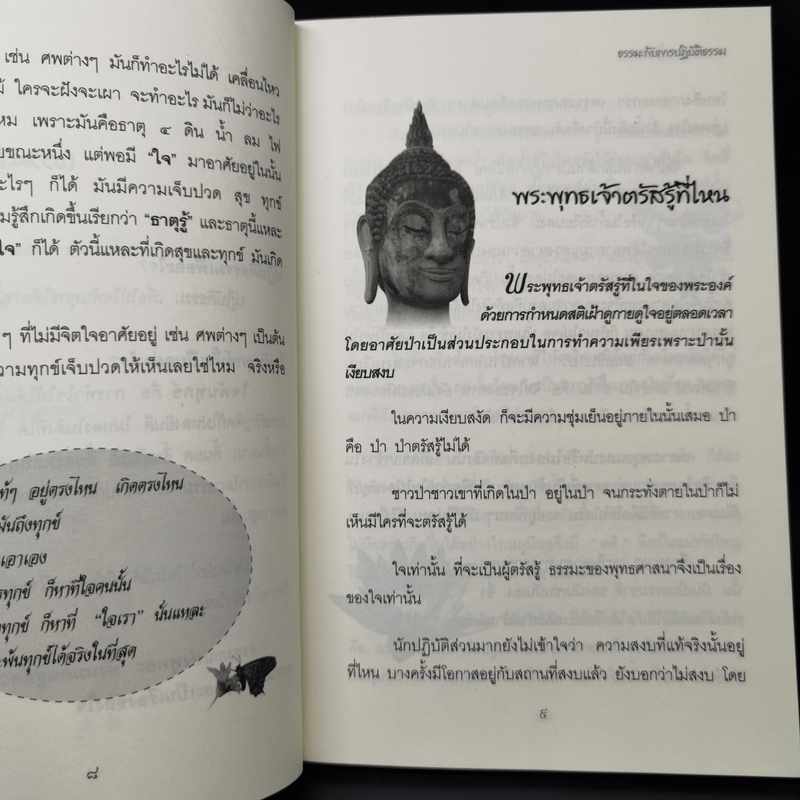 เช่น ศพต่างๆ มันก็ทำอะไรไม่ได้ เคลื่อนไหว
ใครจะฝังจะเผา จะทำอะไร มันก็ไม่ว่าอะไร
เพราะมันคือธาตุ ๔ ดิน น้ำ ลม ไฟ
ขณะหนึ่ง แต่พอมี “ใจ” มาอาศัยอยู่ในนั้น
ะไรๆ ก็ได้ มันมีความเจ็บปวด สุข ทุกข์
มรู้สึกเกิดขึ้นเรียกว่า “ธาตุรู้” และธาตุนี้แหละ
ใจ” ก็ได้ ตัวนี้แหละที่เกิดสุขและทุกข์ มันเกิด
ๆ ที่ไม่มีจิตใจอาศัยอยู่ เช่น ศพต่างๆ เป็นต้น
วามทุกข์เจ็บปวดให้เห็นเลยใช่ไหม จริงหรือ
ท้ๆ อยู่ตรงไหน เกิดตรงไหน
มันถึงทุกข์
เอาเอง
ทุกข์ ก็หาที่ใจคนนั้น
ทุกข์ ก็หาที่ “ใจเรา” นั่นแหละ
ะพ้นทุกข์ได้จริงในที่สุด
๘
ธรรมะกับการปฏิบัติธรรม
พระพุทธเจ้าตรัสรู้ที่ไหน
พระพุทธเจ้าตรัสรู้ที่ในใจของพระองค์
ด้วยการกำหนดสติเฝ้าดูกายดูใจอยู่ตลอดเวลา
โดยอาศัยป่าเป็นส่วนประกอบในการทำความเพียรเพราะป่านั้น
เงียบสงบ
ในความเงียบสงัด ก็จะมีความชุ่มเย็นอยู่ภายในนั้นเสมอ ป่า
คือ ป่า ป่าตรัสรู้ไม่ได้
ชาวป่าชาวเขาที่เกิดในป่า อยู่ในป่า จนกระทั่งตายในป่าก็ไม่
เห็นมีใครที่จะตรัสรู้ได้
ใจเท่านั้น ที่จะเป็นผู้ตรัสรู้ ธรรมะของพุทธศาสนาจึงเป็นเรื่อง
ของใจเท่านั้น
นักปฏิบัติส่วนมากยังไม่เข้าใจว่า ความสงบที่แท้จริงนั้นอยู่
ที่ไหน บางครั้งมีโอกาสอยู่กับสถานที่สงบแล้ว ยังบอกว่าไม่สงบ โดย
๙